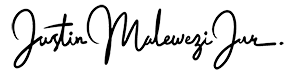 Justin Malewezi Jur.